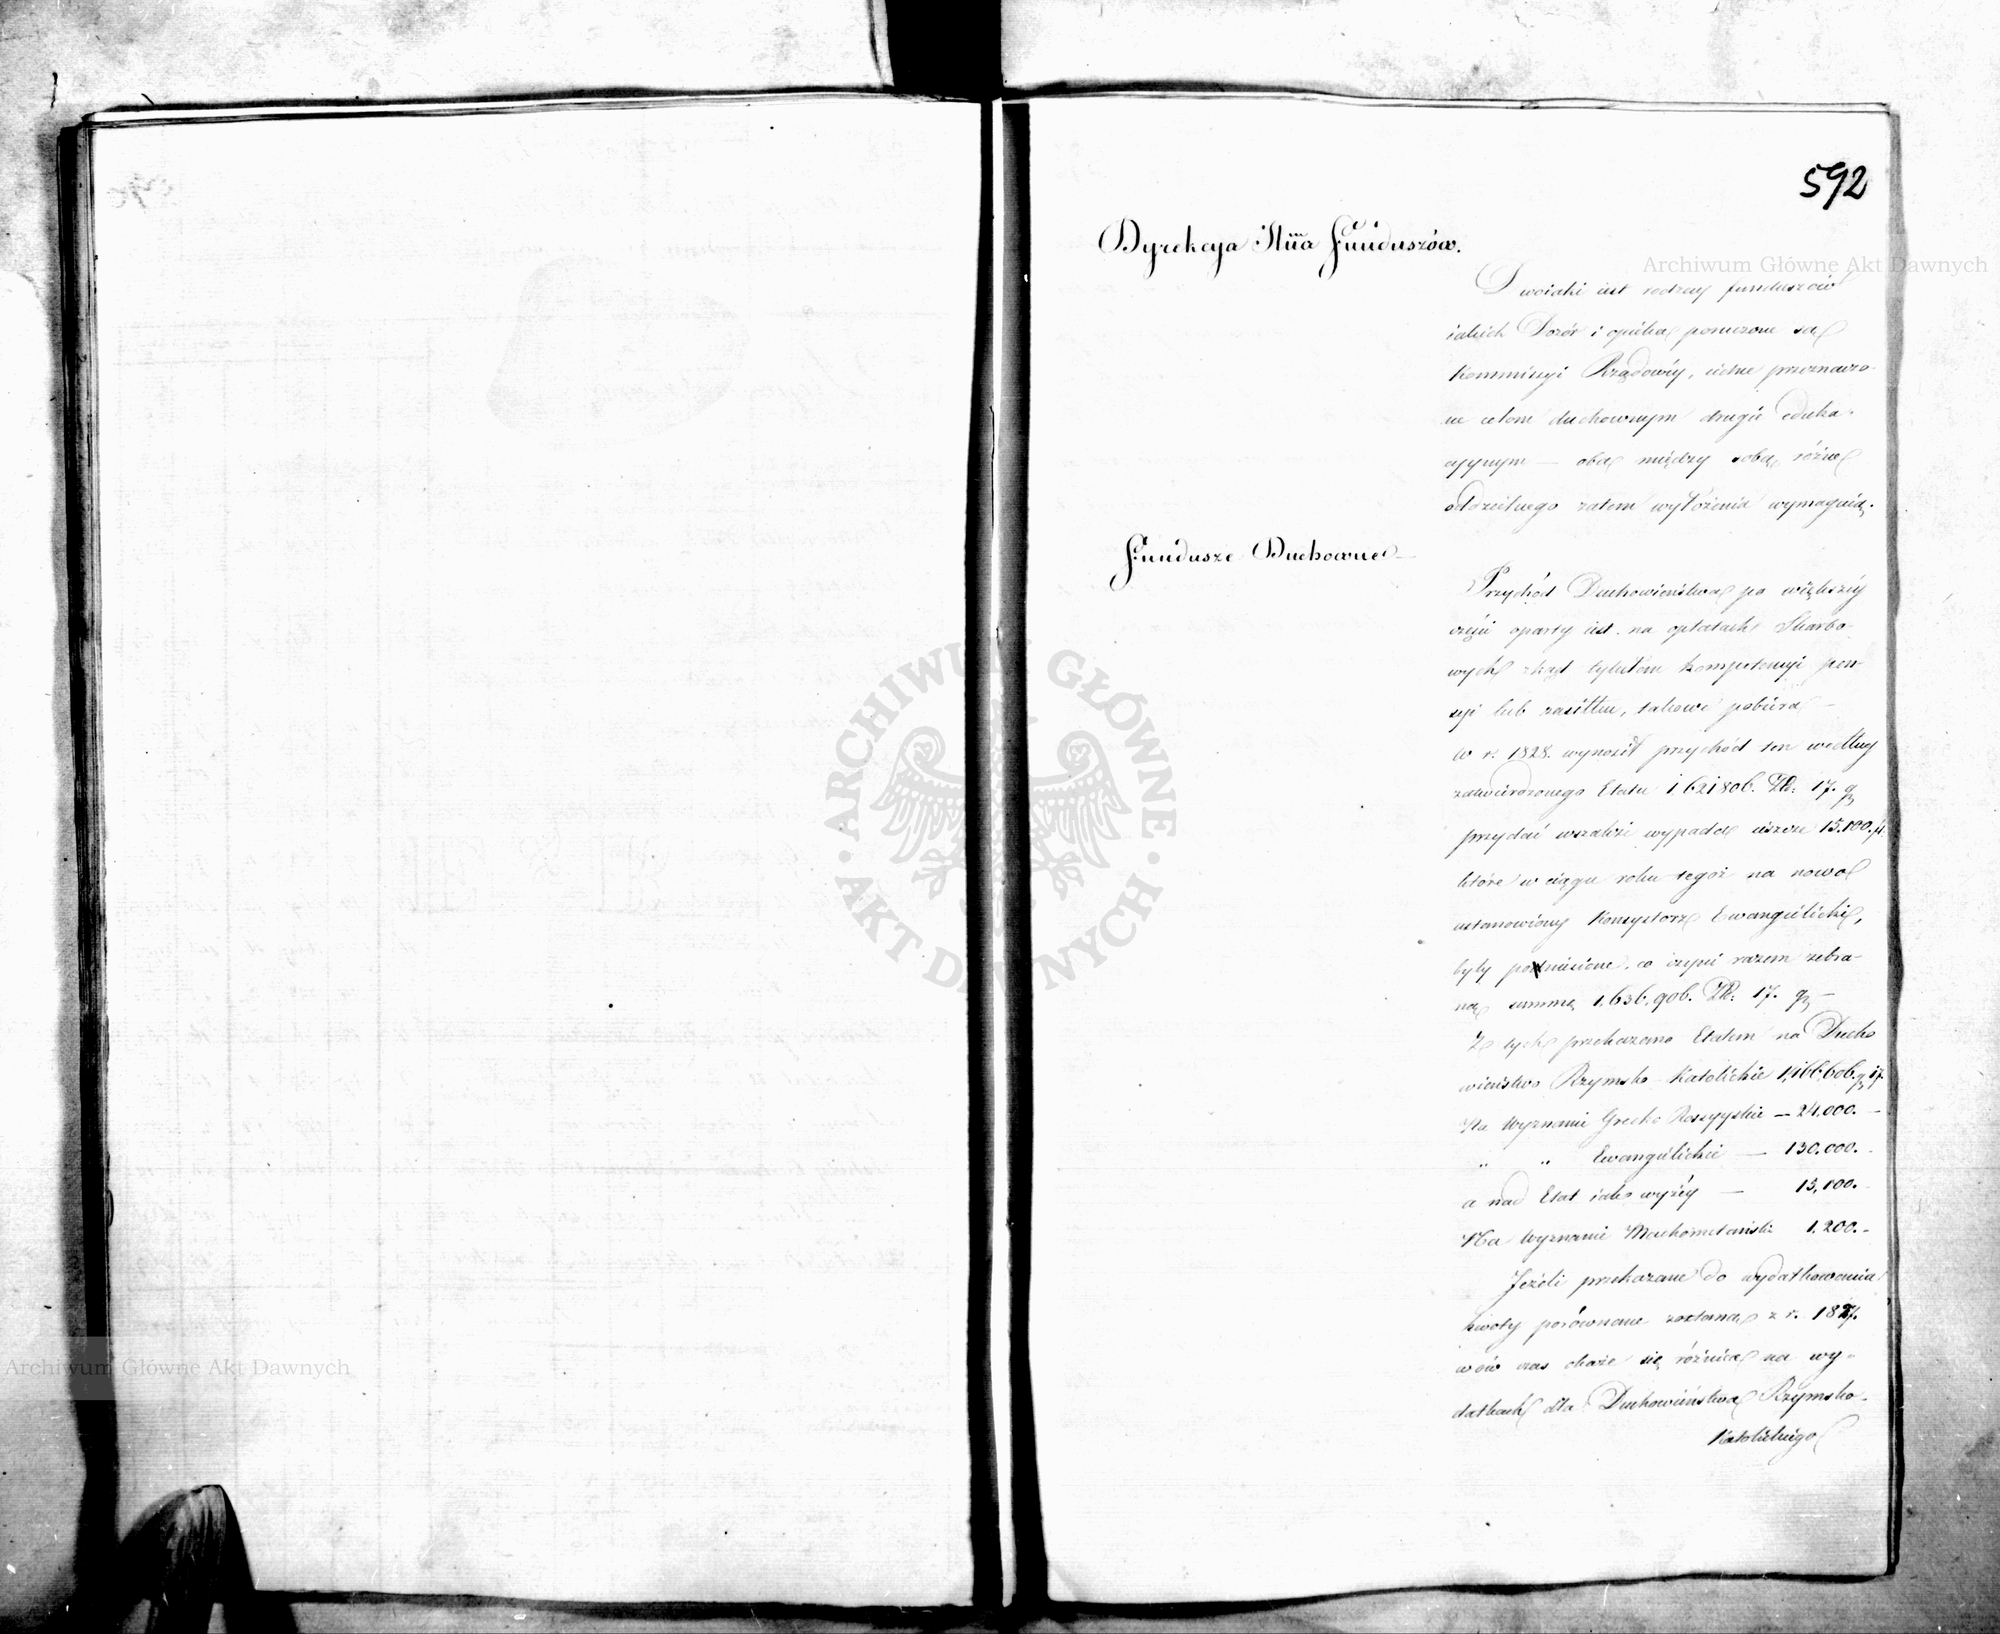 592
Dyrekcya IIIa Funduszów.
Archiwum Główne Akt Dawnych
Dwoiaki iest rodzay funduszów
iakich Dozór i opieka poruczone są
Kommissyi Rządowéy, iedne przeznaczo-
ne celom duchownym drugie eduka-
cyynym — oba między sobą różne
oddzielnego zatem wyłożenia wymagaią.
Fundusze Duchowne —
Przychód Duchowieństwa po większéy
części oparty iest na opłatach Skarbo-
wych zkąd tytułem kompetencyi pen-
syi lub zasiłku, takowe pobiera —
W r. 1828. wynosił przychód ten według
zatwierdzonego Etatu 1,621,806. Zł: 17. g
przydać wszakże wypada ieszcze 15.100.
które w ciągu roku tegoż na nowo
ustanowiony Konsystorz Ewangielicki,
były podniesione, co czyni razem zebra-
ną summę 1,636,906. Zł: 17. g —
Z tych przekazano Etatem na Ducho
wieństwo Rzymsko-Katolickie 1,466,606. g 17.
Na Wyznanie Grecko Rossyyskie — 24,000. —
" " Ewangielickie — 130.000. —
a nad Etat iako wyżéy — 15,100. —
Na Wyznanie Machometański 1.200. —
Jeżeli przekazane do wydatkowania
kwoty porównane zostaną z r. 1827.
wów czas okaże się różnica na wy-
datkach dla Duchowieństwa Rzymsko-
Katolickiego
ARCHIWUM GŁÓWNE
AKT DAWNYCH
Archiwum Główne Akt Dawnych